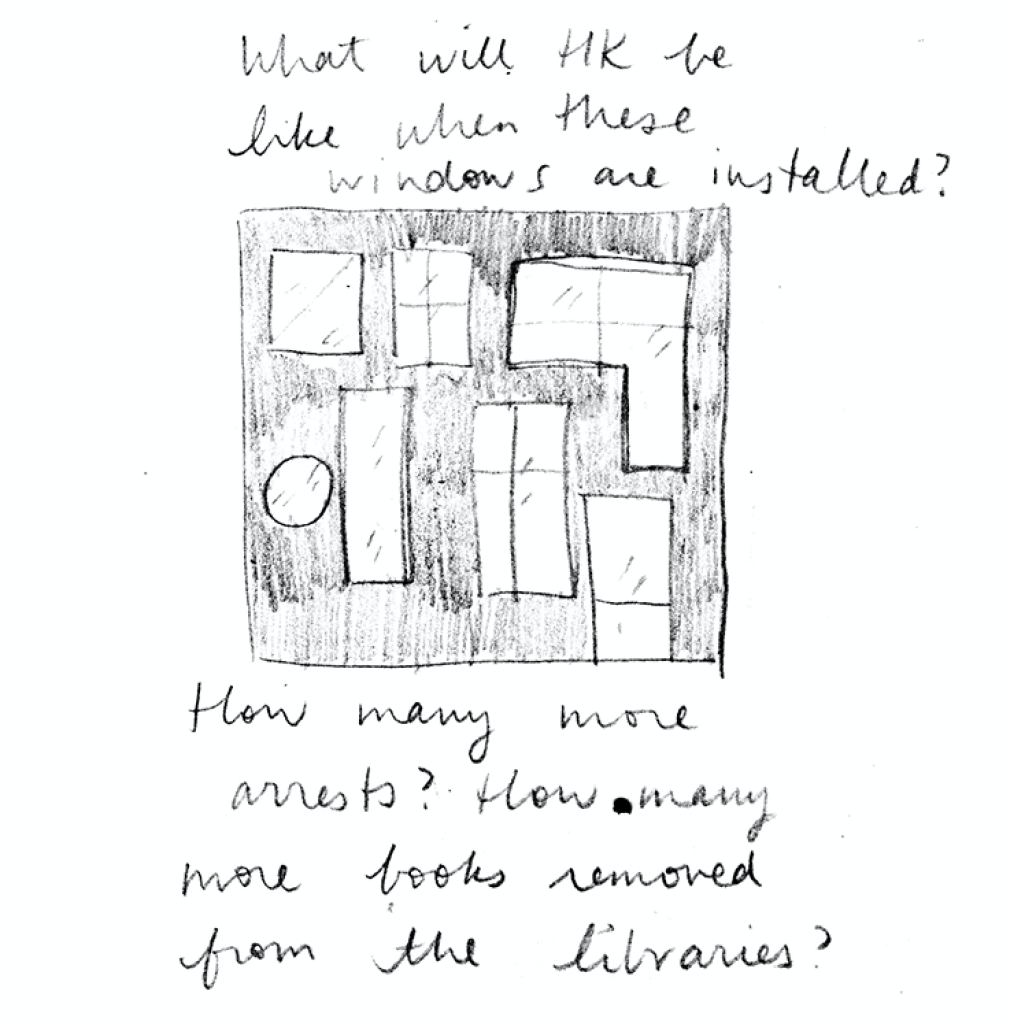 What will HK be
like when these
windows are installed?
How many more
arrests? How many
more books removed
from the libraries?